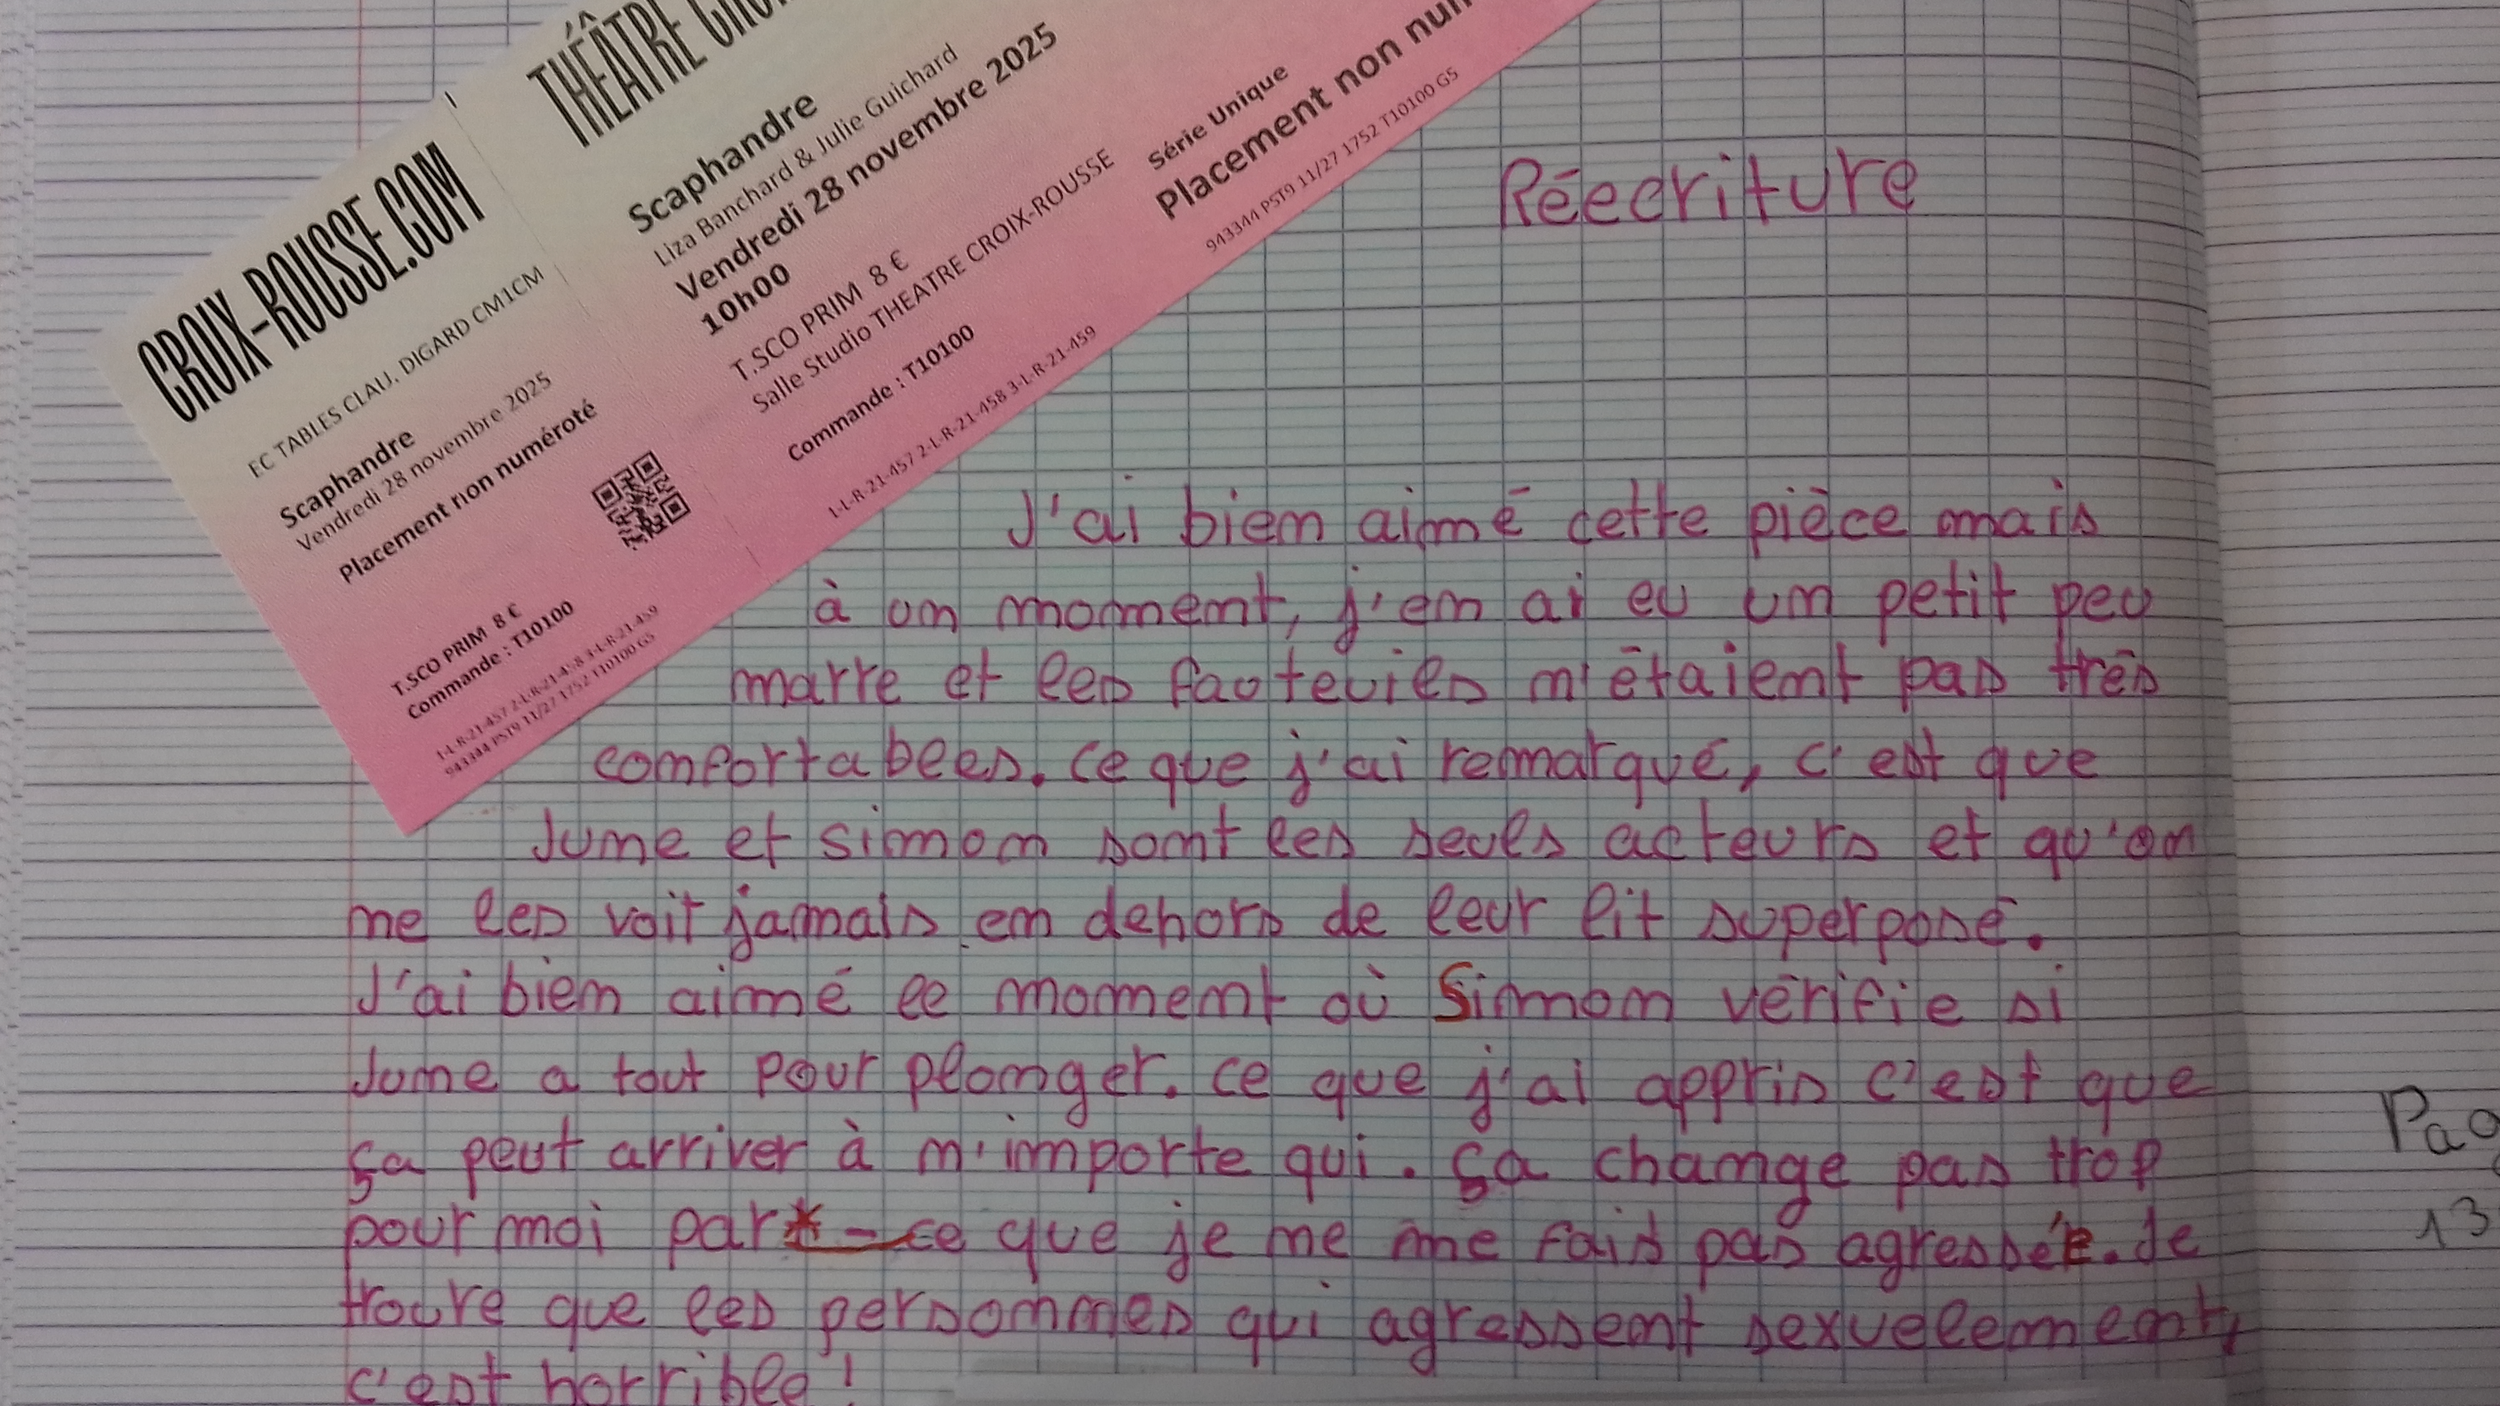 CROIX-ROUSSE.COM
EC TABLES CLAU. DIGARD CM1CM
Scaphandre
Vendredi 28 novembre 2025
Placement non numéroté
T.SCO PRIM 8 €
Commande : T10100
1-L-R-21-457 2-L-R-21-458 3-L-R-21-459
943344 PST9 11/27 1752 T10100 G5
THÉÂTRE
Scaphandre
Liza Banchard & Julie Guichard
Vendredi 28 novembre 2025
10h00
T.SCO PRIM 8 €
Salle Studio THEATRE CROIX-ROUSSE
Commande : T10100
1-L-R-21-457 2-L-R-21-458 3-L-R-21-459
Série Unique
Placement non
943344 PST9 11/27 1752 T10100 G5
Réecriture
J'ai bien aimé cette pièce mais
à un moment, j'en ai eu un petit peu
marre et les fauteuils n'étaient pas très
confortables. Ce que j'ai remarqué, c'est que
June et simon sont les seuls acteurs et qu'on
ne les voit jamais en dehors de leur lit superposé.
J'ai bien aimé le moment où Simon vérifie si
June a tout pour plonger. Ce que j'ai appris c'est que
ça peut arriver à n'importe qui. Ça change pas trop
pour moi par*-ce que je ne me fais pas agressée. Je
trouve que les personnes qui agressent sexuelement,
c'est horrible !
13